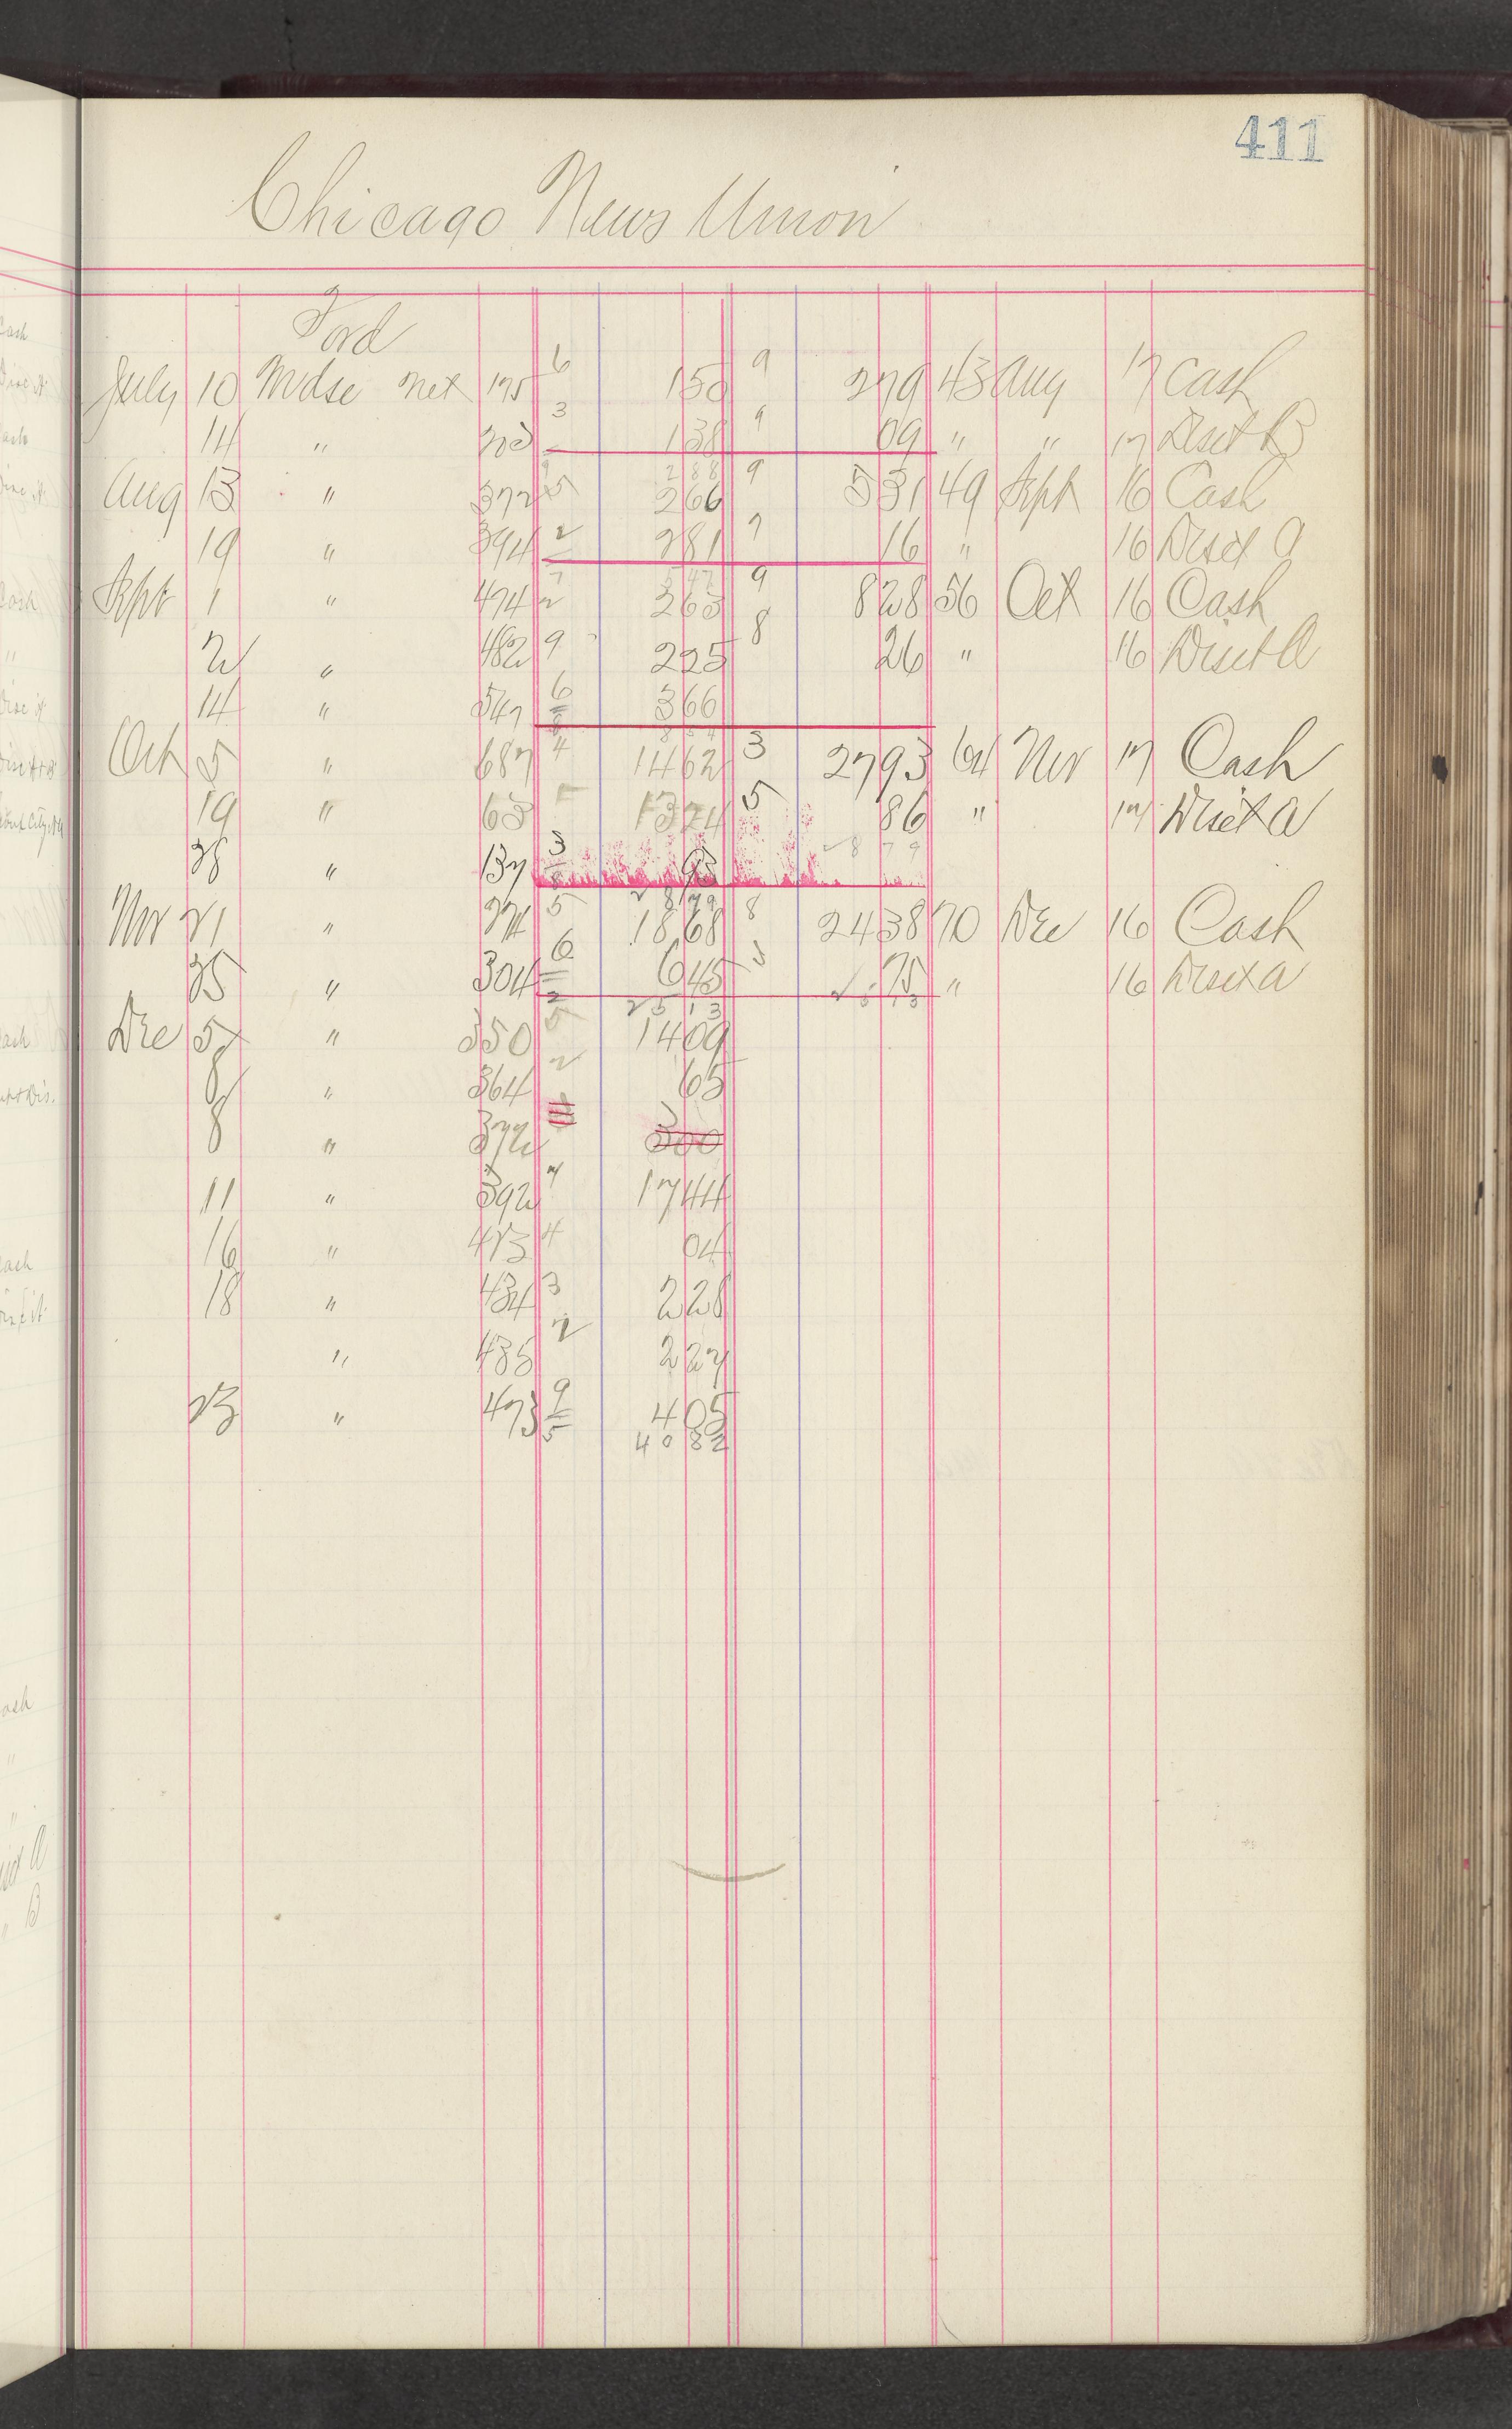 411
Chicago News Union
Ford
July 10 Mdse net 175 6 150 9 279 43 Aug 17 Cash
14 " 3 138 9 09 " " 17 Disct B
288
Aug 13 " 372 5 266 9 531 49 Sept 16 Cash
19 " 394 2 281 7 16 " 16 Disct A
547
Sept 1 " 474 2 263 9 828 56 Oct 16 Cash
2 " 482 9 225 8 26 " 16 Disct A
14 " 547 6 366
854
Oct 5 " 687 4 1462 3 2793 64 Nov 17 Cash
19 " 63 1324 5 86 " 17 Disct A
28 " 137 3 93 2879
2879
Nov 21 " 271 5 1868 8 2438 70 Dec 16 Cash
25 " 304 6 645 2 75 " 16 Disct A
2 2513
Dec 5 " 350 5 1409
8 " 364 2 65
8 " 372 300
11 " 392 7 1744
16 " 413 4 04
18 " 434 3 228
" 435 2 227
23 " 473 9 405
5 4082